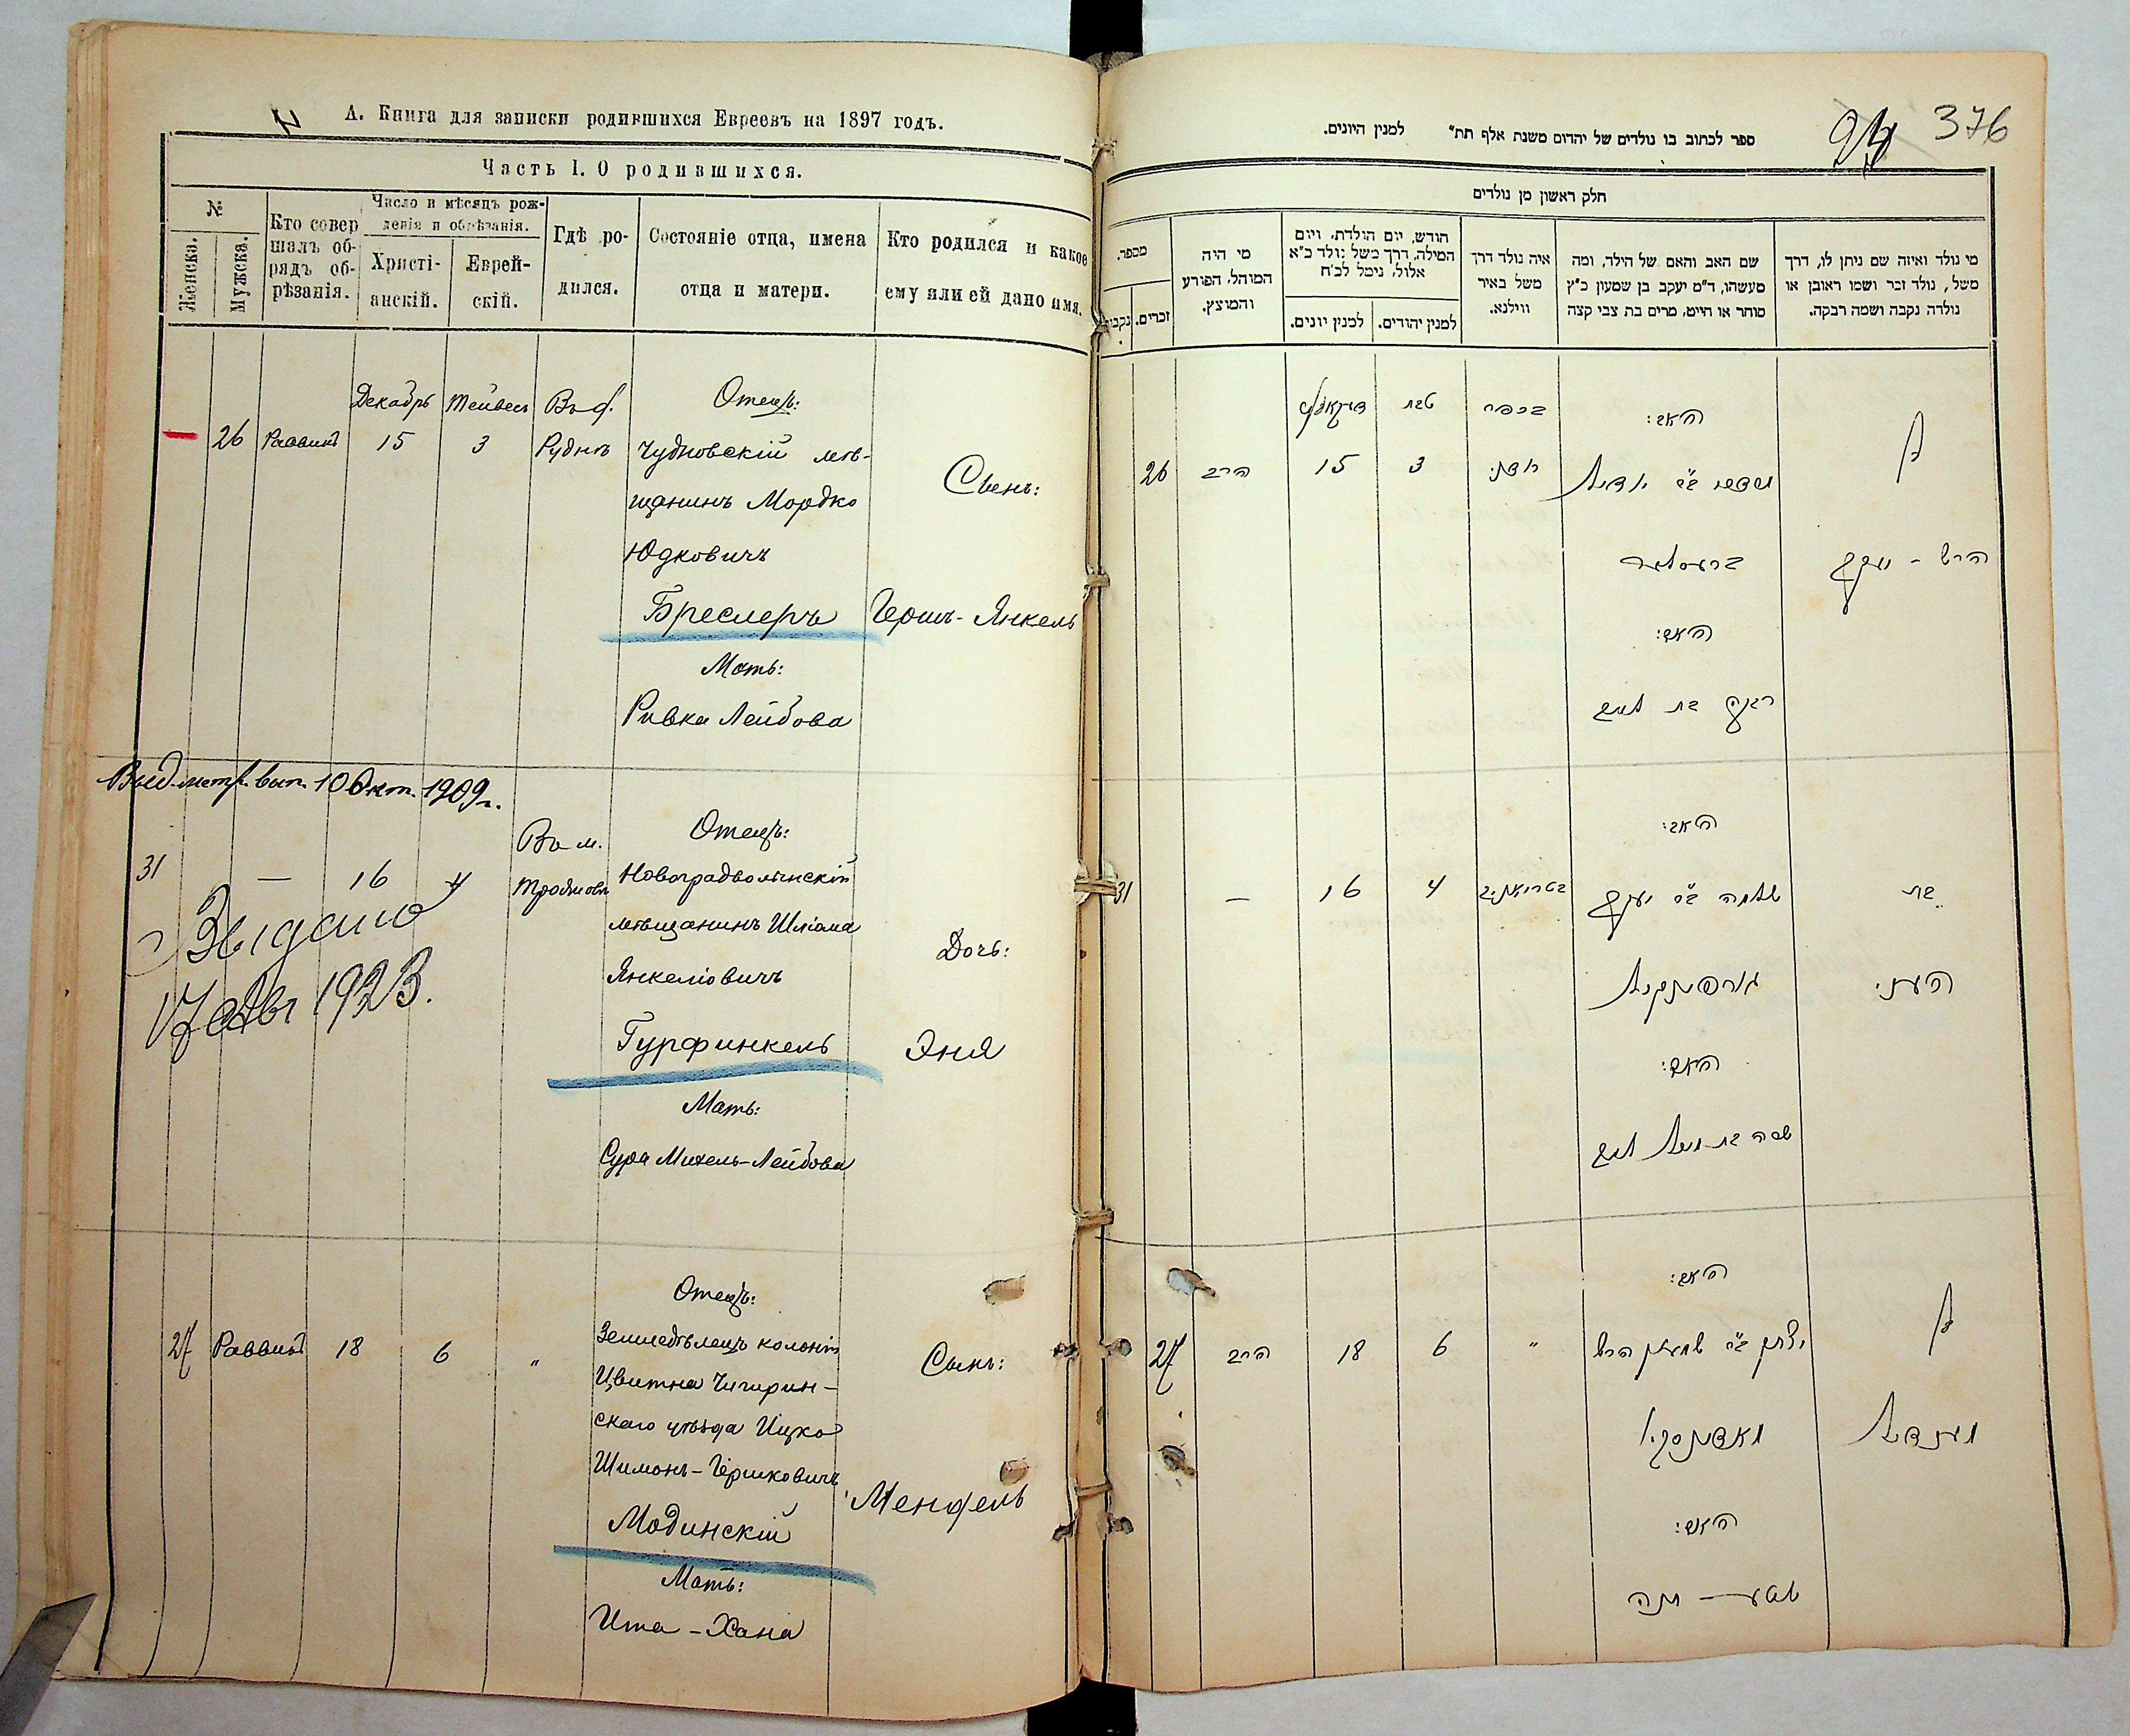 А. Книга для записки родившихся Евреевъ на 1897 годъ.
Часть I. О родившихся.
№
Женска.
Мужска.
Кто совершалъ обрядъ обрѣзанія.
Число и мѣсяцъ рожденія и обрѣзанія.
Христіанскій.
Еврейскій.
Гдѣ родился.
Состояніе отца, имена отца и матери.
Кто родился и какое ему или ей дано имя.
Декабрь Тейвесъ Въ д. Отецъ:
26 Раввинъ 15 3 Рудня Чудновскій мѣ-
щанинъ Мордко Сынъ:
Юдковичъ
Бреслеръ Гершъ-Янкель
Мать:
Ривка Лейбова
Выд. метр. вып. 10 Окт. 1909 г.
Въ м. Отецъ:
31 — 16 4 Новоградволынскій
мѣщанинъ Шліома
Выдано
17 1923.
Янкеліовичъ Дочь:
Гурфинкель Эня
Мать:
Сура Михель-Лейбова
Отецъ:
27 Раввинъ 18 6 " Земледѣлецъ колоніи
Цвитна Чигирин-
скаго уѣзда Ицко
Шимонъ-Гершковичъ
Сынъ:
Модинскій Мендель
Мать:
Ита-Хана
376
ספר לכתוב בו נולדים של יהדום משנת אלף תת״ למנין היונים.
חלק ראשון מן נולדים
מספר.
נקבו
זכרים.
מי היה
המוהל, הפורע
והמוצץ.
חודש, יום הולדת, ויום
המילה, דרך משל נולד כ״א
אלול, נימל לכ״ח
למנין יונים.
למנין יהודים.
איה נולד דרך
משל באיר
ווילנא.
שם האב והאם של הילד, ומה
מעשהו, ד״מ יעקב בן שמעון כ״ץ
סוחר או חייט, מרים בת צבי קצה
מי נולד ואיזה שם ניתן לו, דרך
משל, נולד זכר ושמו ראובן או
נולדה נקבה ושמה רבקה.
טבת האב:
26 הרב 15 3 בן
ברעסלער הרש - יעקב
האם:
רבקה בת לייב
האב:
31 — 16 4 שלמה ב״ר יעקב בת
גורפינקיל העני
האם:
שרה בת מיכל לייב
האב:
27 הרב 18 6 " יצחק ב״ר שמעון הרש בן
מאדינסקי מענדיל
האם:
חנה